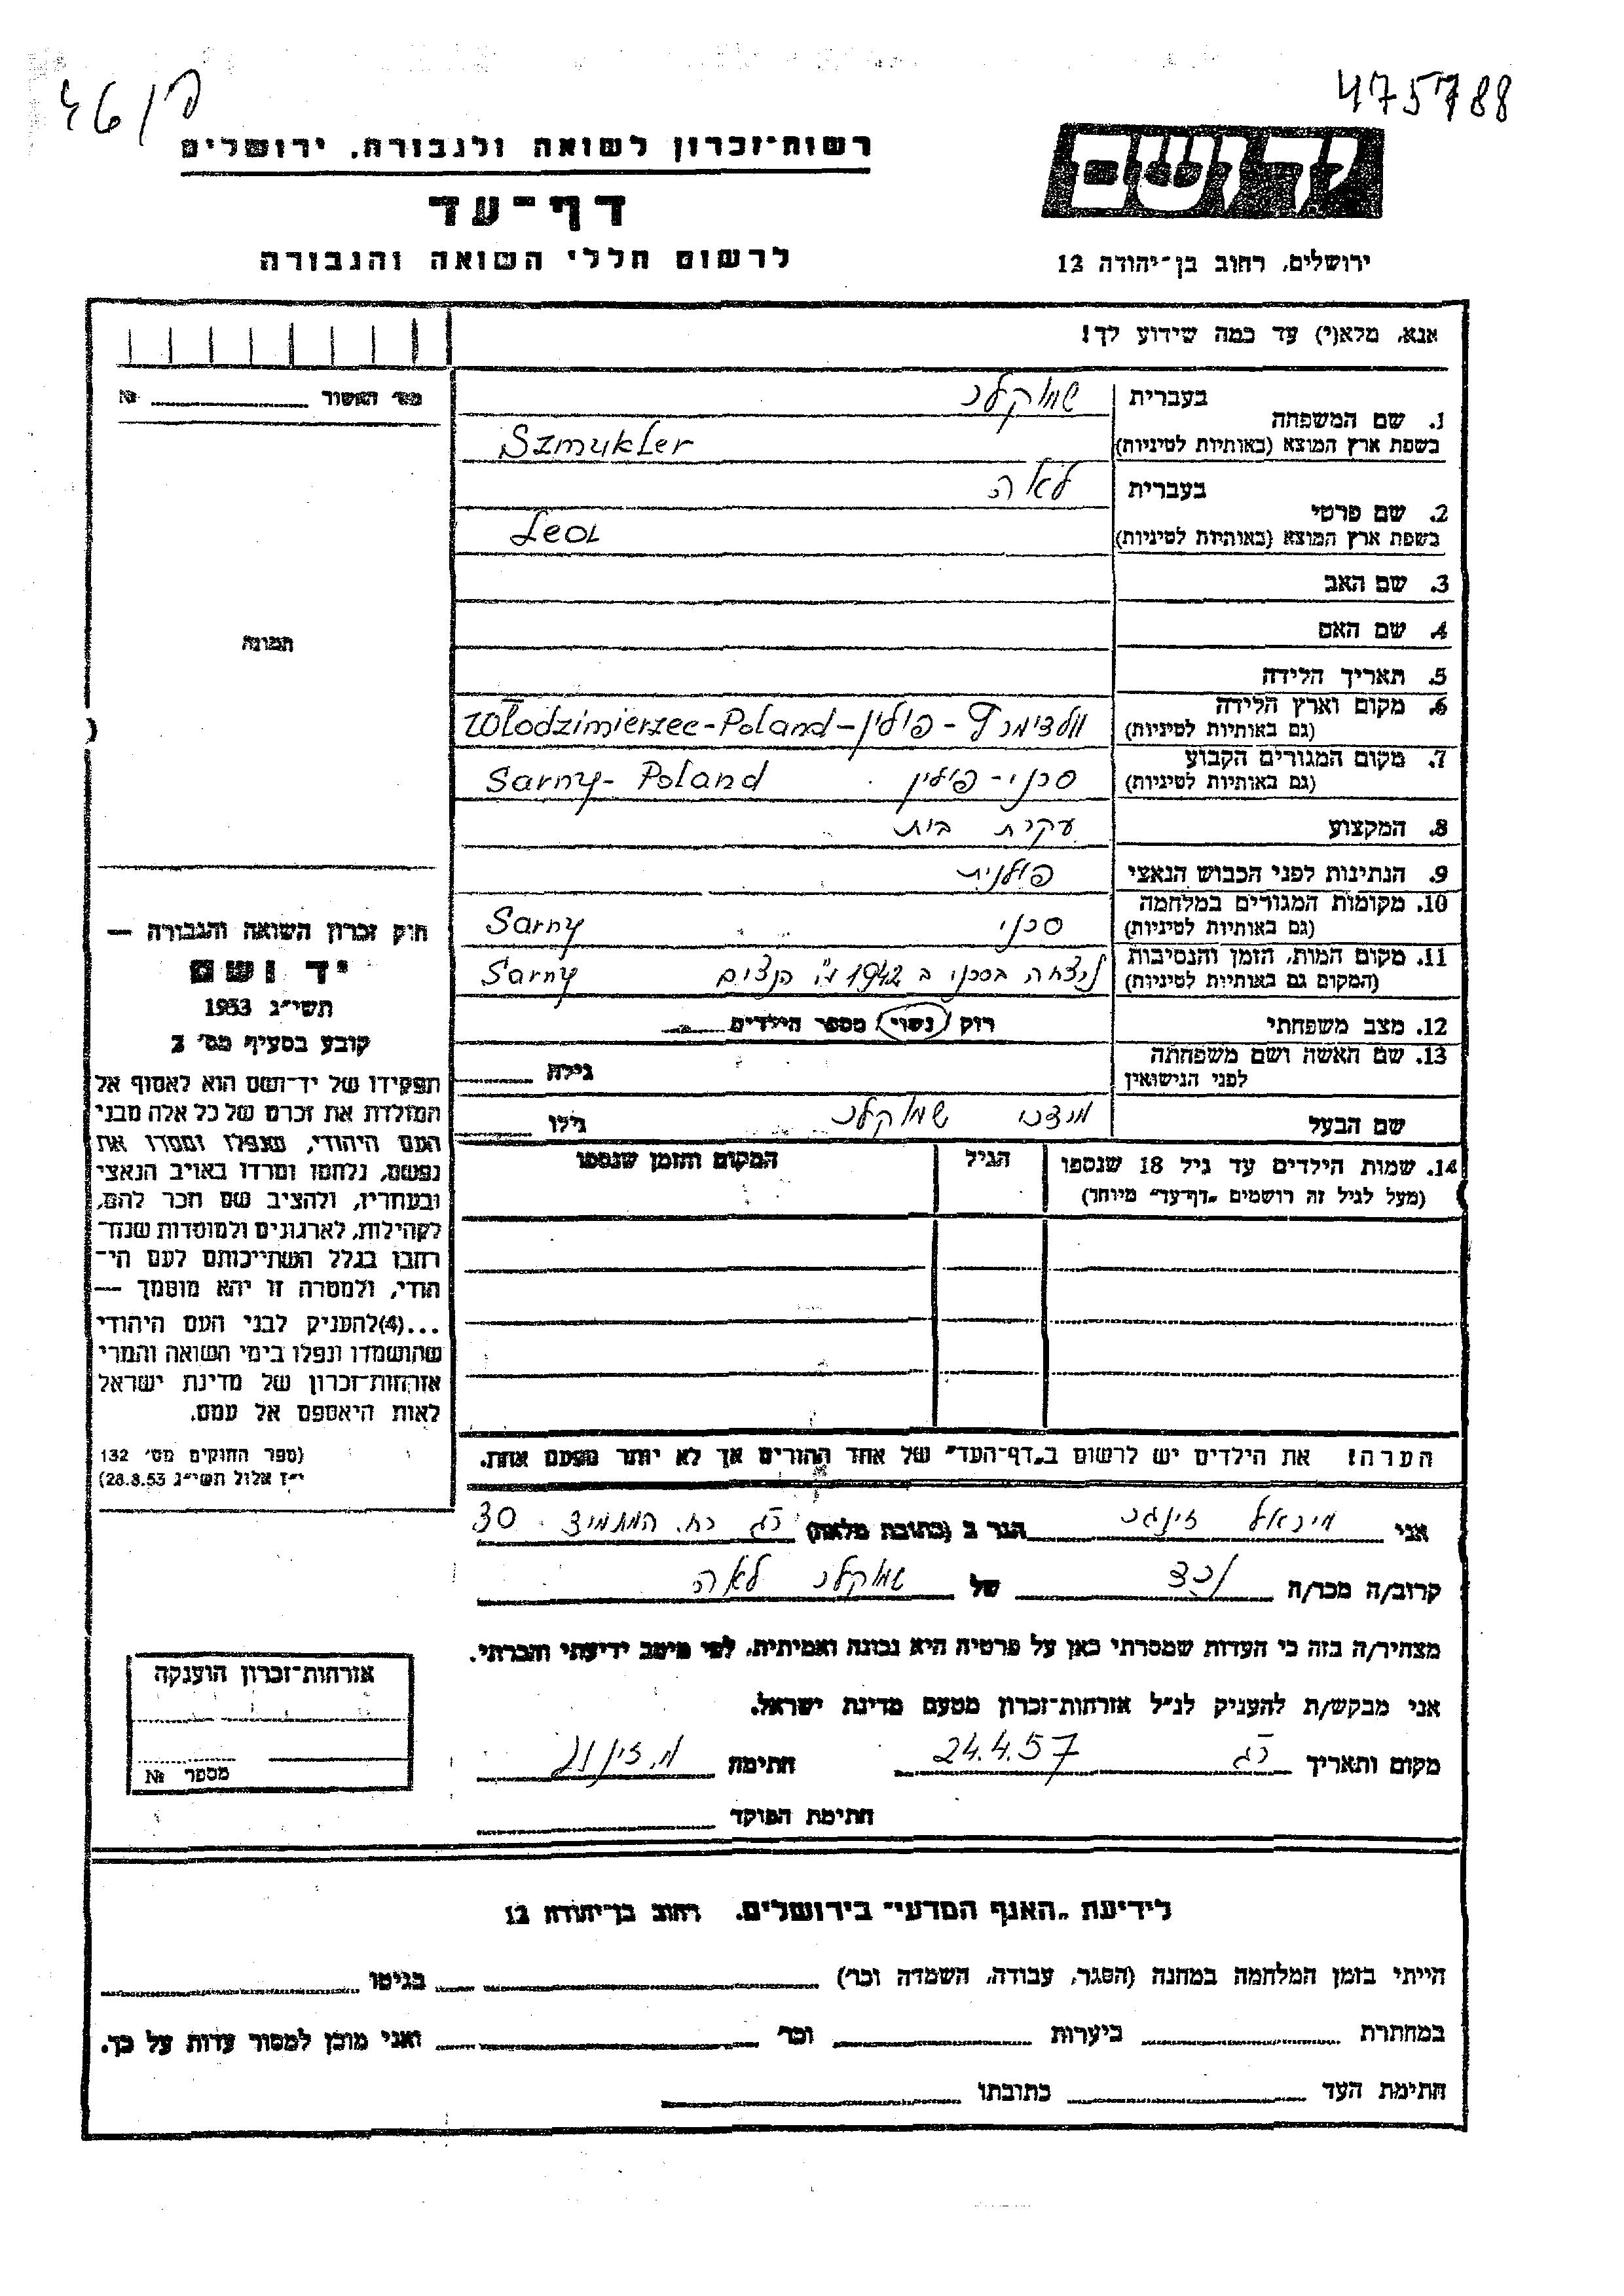 475788
רשות-זכרון לשואה ולגבורה, ירושלים
דף-עד
לרשום חללי השואה והגבורה
יד ושם
ירושלים, רחוב בן-יהודה 12
אנא, מלא(י) עד כמה שידוע לך!
מס' האשור №
תמונה
1. שם המשפחה
בעברית שמוקלר
בשפת ארץ המוצא (באותיות לטיניות) Szmukler
2. שם פרטי
בעברית לאה
בשפת ארץ המוצא (באותיות לטיניות) Lea
3. שם האב
4. שם האם
5. תאריך הלידה
6. מקום וארץ הלידה
(גם באותיות לטיניות) - פולין - Włodzimierzec-Poland
7. מקום המגורים הקבוע
(גם באותיות לטיניות) סרני - פולין Sarny-Poland
8. המקצוע עקרת בית
9. הנתינות לפני הכבוש הנאצי פולנית
10. מקומות המגורים במלחמה
(גם באותיות לטיניות) סרני Sarny
11. מקום המות, הזמן והנסיבות
(המקום גם באותיות לטיניות) נרצחה בסרני ב 1942 ע"י הנצים Sarny
12. מצב משפחתי רוק / נשוי / מספר הילדים
13. שם האשה ושם משפחתה
לפני הנישואין גילה
שם הבעל שמוקלר גילו
14. שמות הילדים עד גיל 18 שנספו הגיל המקום והזמן שנספו
(מעל לגיל זה רושמים „דף-עד” מיוחד)
הערה! את הילדים יש לרשום ב„דף-העד” של אחד ההורים אך לא יותר מפעם אחת.
חוק זכרון השואה והגבורה —
יד ושם
תשי"ג 1953
קובע בסעיף מס' 2
תפקידו של יד-ושם הוא לאסוף אל
המולדת את זכרם של כל אלה מבני
העם היהודי, שנפלו ומסרו את
נפשם, נלחמו ומרדו באויב הנאצי
ובעוזריו, ולהציב שם וזכר להם,
לקהילות, לארגונים ולמוסדות שנח-
רבו בגלל השתייכותם לעם הי-
הודי, ולמטרה זו יהא מוסמך —
...(4)להעניק לבני העם היהודי
שהושמדו ונפלו בימי השואה והמרי
אזרחות-זכרון של מדינת ישראל
לאות היאספם אל עמם.
(ספר החוקים מס' 132
י"ז אלול תשי"ג 28.8.53)
אני מיכאל זינגר הגר ב (כתובת מלאה) ר"ג רח. המתמיד 30
קרוב/ה מכר/ה נכד של שמוקלר לאה
מצהיר/ה בזה כי העדות שמסרתי כאן על פרטיה היא נכונה ואמיתית, לפי מיטב ידיעתי והכרתי.
אני מבקש/ת להעניק לנ"ל אזרחות-זכרון מטעם מדינת ישראל.
מקום ותאריך ר"ג 24.4.57 חתימה
חתימת הפוקד
אזרחות-זכרון הוענקה
מספר №
לידיעת „האגף המדעי” בירושלים, רחוב בן-יהודה 12
הייתי בזמן המלחמה במחנה (הסגר, עבודה, השמדה וכו') בגיטו
במחתרת ביערות וכו' ואני מוכן למסור עדות על כך.
חתימת העד כתובתו